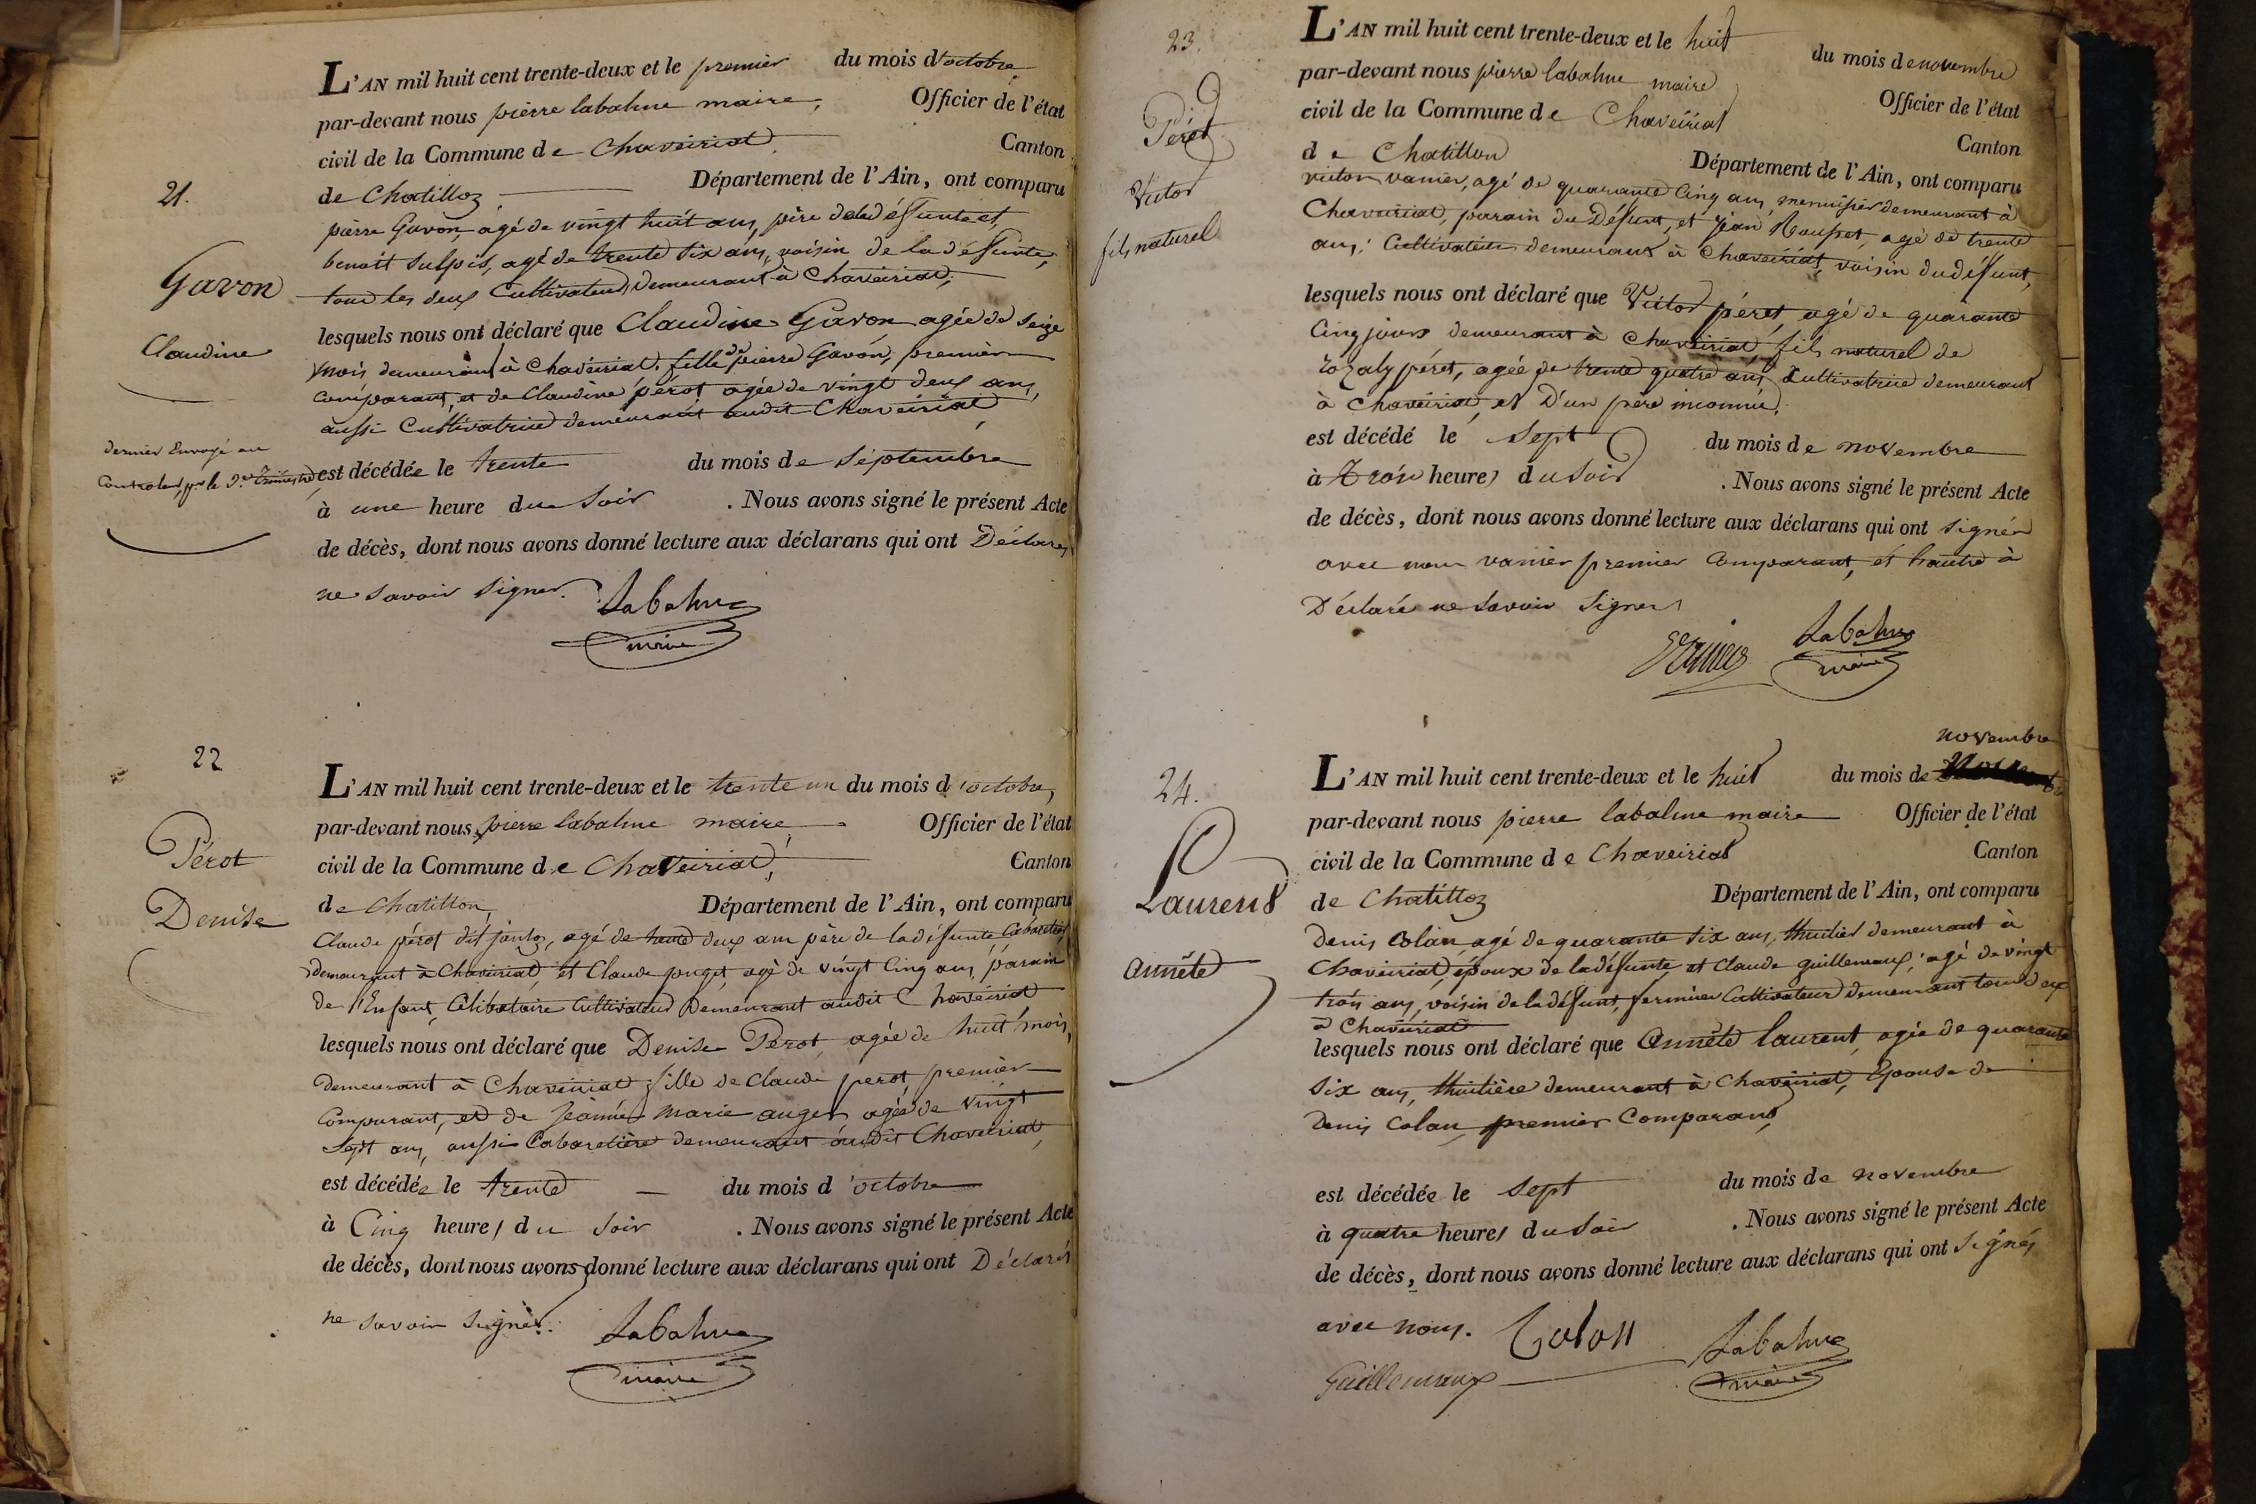 21.
Gavon
Claudine
dernier Envoyé au
Controleur, pr le 3.e Trimestre
L'AN mil huit cent trente-deux et le premier du mois d'octobre
par-devant nous pierre labalme maire, Officier de l'état
civil de la Commune de Chaveiriat, Canton
de Chatillon Département de l'Ain, ont comparu
pierre Gavon, agé de vingt huit ans, père de la défunte et
benoit Sulpis, agé de trente six ans, voisin de la défunte,
tous les deux Cultivateurs demeurant à Chaveiriat,
lesquels nous ont déclaré que Claudine Gavon agée de seize
mois demeurant à Chaveiriat, fille de pierre Gavon, premier
comparant, et de Claudine pérot agée de vingt deux ans,
aussi Cultivatrice demeurant audit Chaveiriat,
est décédée le trente du mois de septembre
à une heure du Soir . Nous avons signé le présent Acte
de décès, dont nous avons donné lecture aux déclarans qui ont Déclarés
ne savoir signer. Labalme
maire
22
Pérot
Denise
L'AN mil huit cent trente-deux et le trente un du mois d'octobre,
par-devant nous pierre labalme maire, Officier de l'état
civil de la Commune de Chaveiriat, Canton
de Chatillon, Département de l'Ain, ont comparu
Claude pérot dit , agé de trente deux ans père de la défunte Cabaretier
demeurant à Chaveiriat, et Claude puget, agé de vingt Cinq ans, parain
de l'Enfant, Célibataire Cultivateur Demeurant audit Chaveiriat
lesquels nous ont déclaré que Denise Perot, agée de huit mois,
demeurant à Chaveiriat fille de Claude perot, premier
comparant, et de Jeanne marie auger agée de vingt
Sept ans, aussi Cabaretière demeurant audit Chaveiriat,
est décédée le trente du mois d'octobre
à Cinq heures du Soir . Nous avons signé le présent Acte
de décès, dont nous avons donné lecture aux déclarans qui ont Déclarés
ne savoir signèr. Labalme
maire
23.
Péret
Victor
fils naturel
L'AN mil huit cent trente-deux et le huit du mois de novembre
par-devant nous pierre labalme maire Officier de l'état
civil de la Commune de Chaveiriat Canton
de Chatillon Département de l'Ain, ont comparu
victor vanier, agé de quarante Cinq ans, menuisier demeurant à
Chaveiriat, parain du Défunt, et Jean Rousset, agé de trente
ans, Cultivateur demeurant à Chaveiriat, voisin du défunt,
lesquels nous ont déclaré que Victor péret, agé de quarante
Cinq jours demeurant à Chaveiriat fils naturel de
rozaly péret, agée de trente quatre ans, Cultivatrice demeurant
à Chaveiriat, et D'un père inconnu,
est décédé le sept du mois de novembre
à Trois heures du Soir . Nous avons signé le présent Acte
de décès, dont nous avons donné lecture aux déclarans qui ont signér
avec nous vanier premier Comparant, et l'autre à
Déclaré ne savoir signer
Vanier Labalme
maire
24.
Laurent
annéte
novembre
L'AN mil huit cent trente-deux et le huit du mois de
par-devant nous pierre labalme maire Officier de l'état
civil de la Commune de Chaveiriat Canton
de Chatillon Département de l'Ain, ont comparu
Denis Colan, agé de quarante six ans, thuilier demeurant à
Chaveiriat, époux de la défunte, et Claude guillemaux, agé de vingt
trois ans, voisin de la défunt, fermier Cultivateur demeurant tous deux
à Chaveiriat
lesquels nous ont déclaré que annéte laurent, agée de quarante
six ans, thuilière demeurant à Chaveiriat, Epouse de
Denis Colan, premier Comparant,
est décédée le sept du mois de novembre
à quatre heures du Soir . Nous avons signé le présent Acte
de décès, dont nous avons donné lecture aux déclarans qui ont signés
avec nous. Colon Labalme
Guillemaux maire